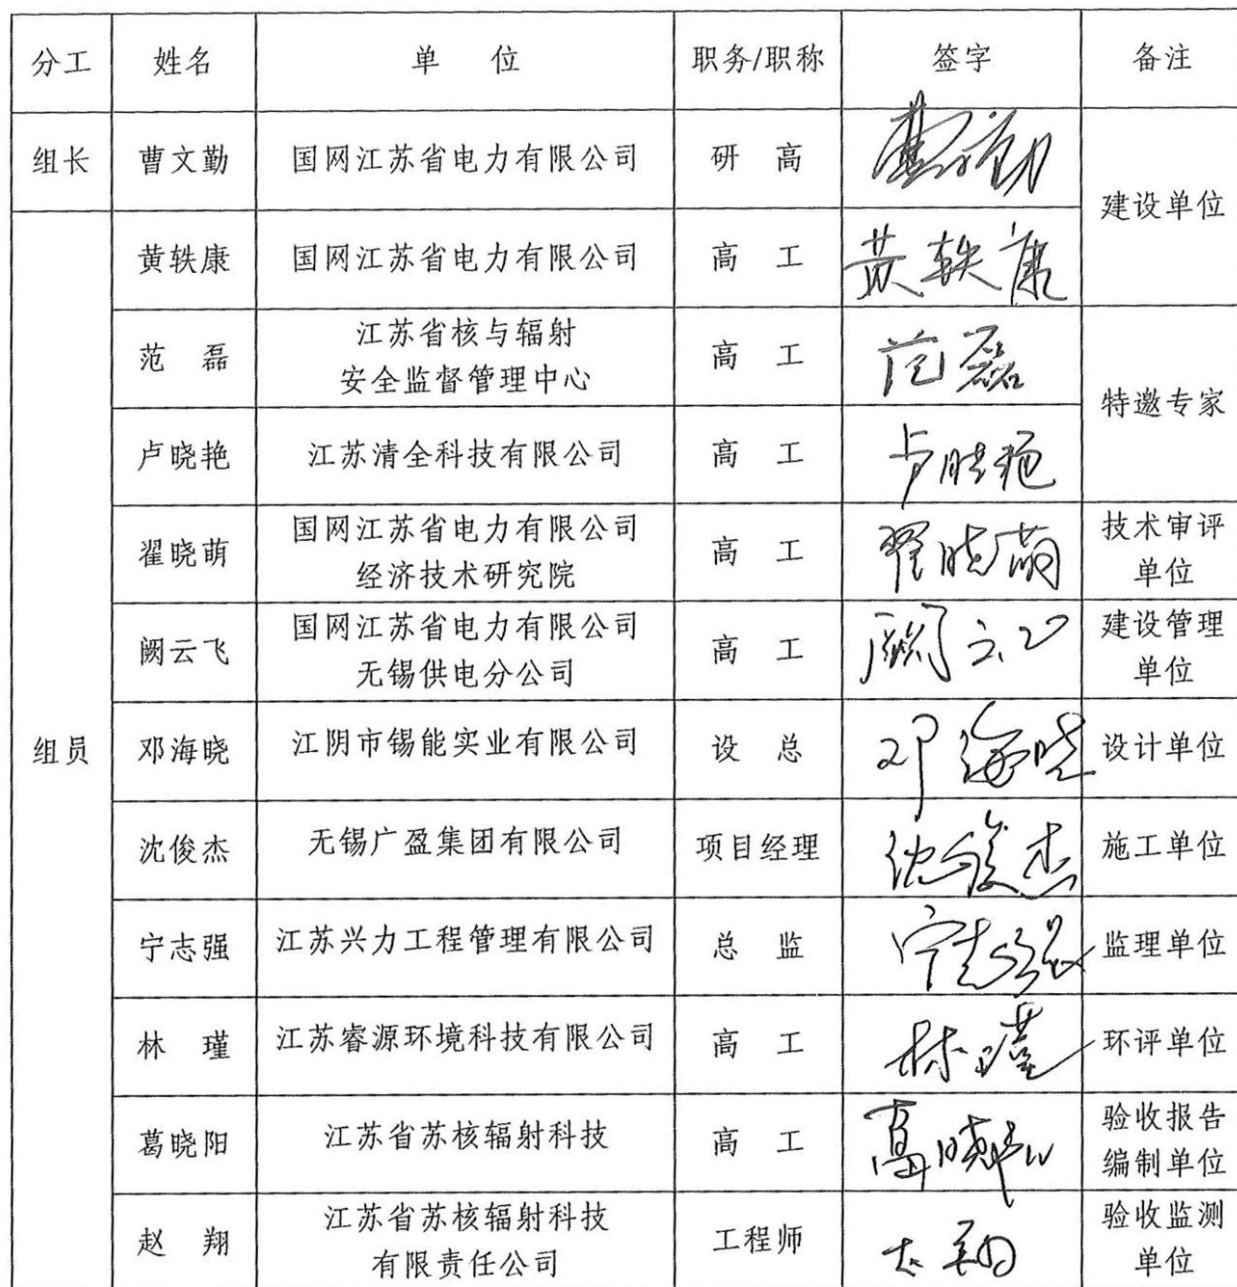 分工 姓名 单 位 职务/职称 签字 备注
组长 曹文勤 国网江苏省电力有限公司 研 高 建设单位
黄轶康 国网江苏省电力有限公司 高 工 黄轶康
范 磊 江苏省核与辐射
安全监督管理中心 高 工 范磊 特邀专家
卢晓艳 江苏清全科技有限公司 高 工 卢晓艳
翟晓萌 国网江苏省电力有限公司
经济技术研究院 高 工 翟晓萌 技术审评
单位
阙云飞 国网江苏省电力有限公司
无锡供电分公司 高 工 阙云飞 建设管理
单位
组员 邓海晓 江阴市锡能实业有限公司 设 总 邓海晓 设计单位
沈俊杰 无锡广盈集团有限公司 项目经理 沈俊杰 施工单位
宁志强 江苏兴力工程管理有限公司 总 监 宁志强 监理单位
林 瑾 江苏睿源环境科技有限公司 高 工 林瑾 环评单位
葛晓阳 江苏省苏核辐射科技 高 工 验收报告
编制单位
赵 翔 江苏省苏核辐射科技
有限责任公司 工程师 验收监测
单位